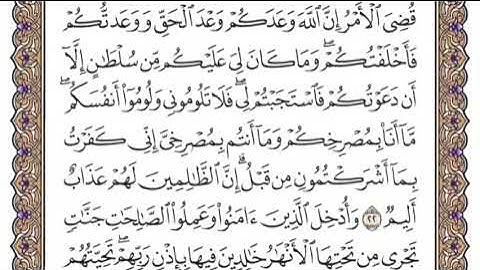 قُضِىَ ٱلْأَمْرُ إِنَّ ٱللَّهَ وَعَدَكُمْ وَعْدَ ٱلْحَقِّ وَوَعَدتُّكُمْ
فَأَخْلَفْتُكُمْ ۖ وَمَا كَانَ لِىَ عَلَيْكُم مِّن سُلْطَـٰنٍ إِلَّآ
أَن دَعَوْتُكُمْ فَٱسْتَجَبْتُمْ لِى ۖ فَلَا تَلُومُونِى وَلُومُوٓا۟ أَنفُسَكُم ۖ
مَّآ أَنَا۠ بِمُصْرِخِكُمْ وَمَآ أَنتُم بِمُصْرِخِىَّ ۖ إِنِّى كَفَرْتُ
بِمَآ أَشْرَكْتُمُونِ مِن قَبْلُ ۗ إِنَّ ٱلظَّـٰلِمِينَ لَهُمْ عَذَابٌ
أَلِيمٌ ٢٢ وَأُدْخِلَ ٱلَّذِينَ ءَامَنُوا۟ وَعَمِلُوا۟ ٱلصَّـٰلِحَـٰتِ جَنَّـٰتٍ
تَجْرِى مِن تَحْتِهَا ٱلْأَنْهَـٰرُ خَـٰلِدِينَ فِيهَا بِإِذْنِ رَبِّهِمْ ۖ تَحِيَّتُهُمْ